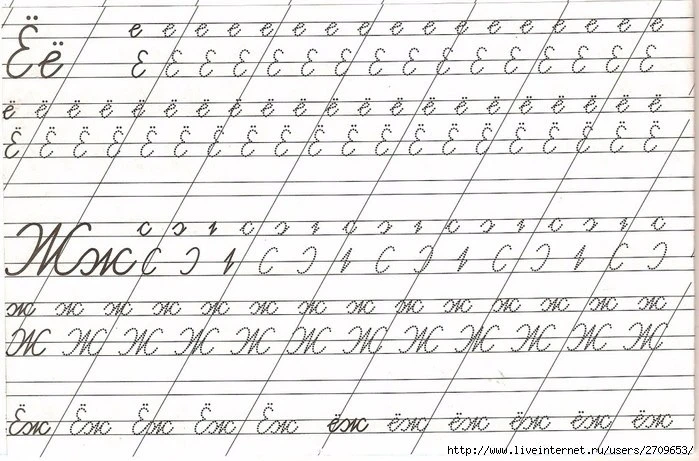 Ёё е е е е е е е е е е е е е е е е е
Е Е Е Е Е Е Е Е Е Е Е Е Е Е Е Е
ё ё ё ё ё ё ё ё ё ё ё ё ё ё ё ё ё ё ё ё ё
Ё Ё Ё Ё Ё Ё Ё Ё Ё Ё Ё Ё Ё Ё Ё Ё Ё Ё Ё Ё
Жж
ж ж ж ж ж ж ж ж ж ж ж ж ж ж
Ж Ж Ж Ж Ж Ж Ж Ж Ж Ж Ж Ж
Ёж Ёж Ёж Ёж Ёж ёж ёж ёж ёж ёж ёж
http://www.liveinternet.ru/users/2709653/